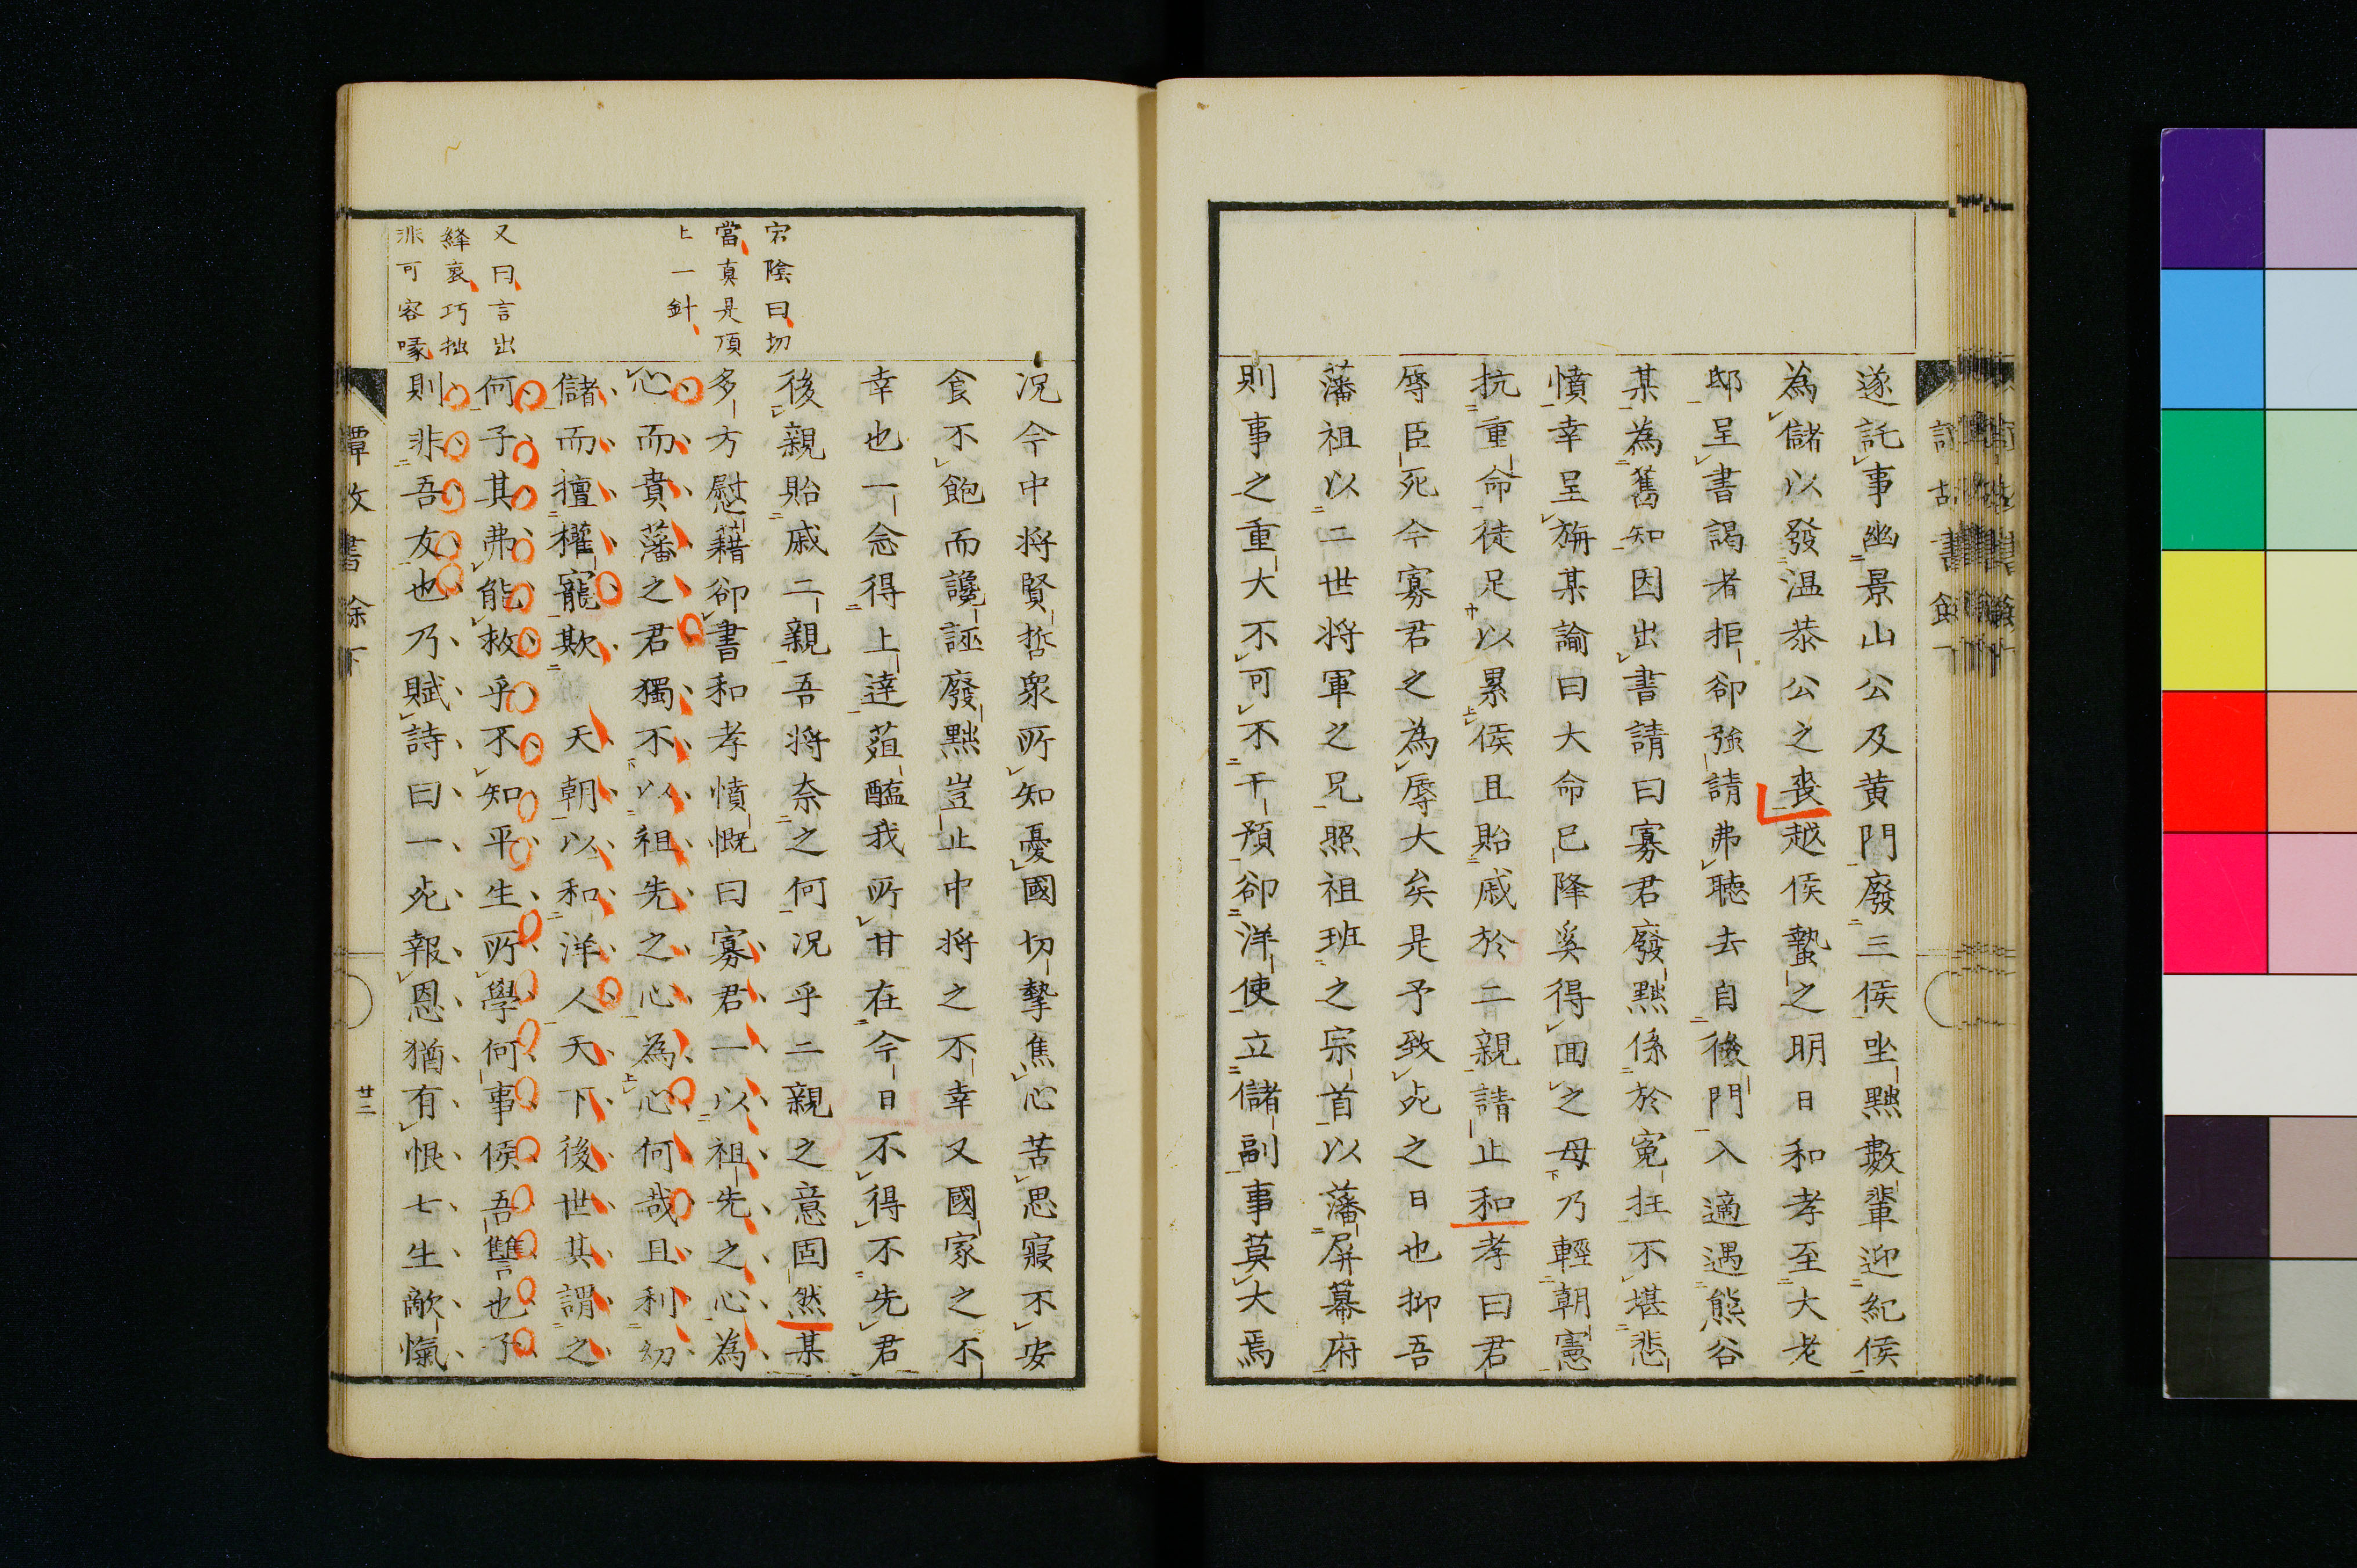 遂託事幽景山公及黄門廢三侯坐黜數輩迎紀侯
為儲以發温恭公之喪越侯蟄之明日和孝至大老
邸呈書謁者拒卻強請弗聴去自後門入適遇熊谷
某為舊知因出書請曰寡君廢黜係於寃抂不堪悲
憤幸呈旃某諭曰大命已降奚得囬之毋乃輕朝憲
抗重命徒足以累侯且貽戚於二親請止和孝曰君
辱臣死今寡君之為辱大矣是予致死之日也抑吾
藩祖以二世将軍之兄照祖班之宗首以藩屏幕府
則事之重大不可不干預卻洋使立儲副事莫大焉
況今中将賢哲衆所知憂國切摯焦心苦思寢不安
食不飽而讒誣廢黜豈止中将之不幸又國家之不
幸也一念得上達葅醢我所甘在今日不得不先君
後親貽戚二親吾将奈之何况乎二親之意固然某
多方慰藉卻書和孝憤慨曰寡君一以祖先之心為
心而賁藩之君獨不以祖先之心為心何哉且利幼
儲而擅權寵欺 天朝以和洋人天下後世其謂之
何子其弗能救乎不知平生所學何事侯吾讐也子
則非吾友也乃賦詩曰一死報恩猶有恨七生敵愾
宕陰曰切
當真是頂
上一針
又曰言出
絳衷巧拙
非可容喙
譚故書餘下
廿二